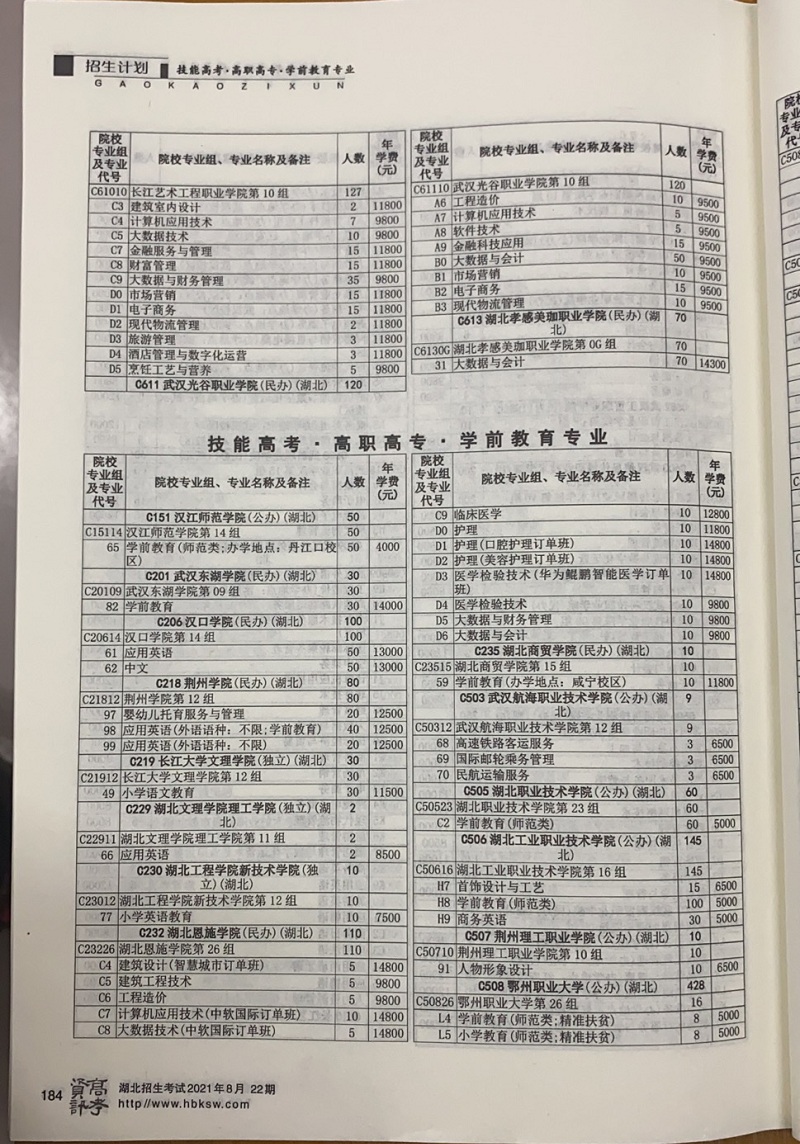 招生计划 技能高考·高职高专·学前教育专业
GAOKAOZIXUN
院校专业组及专业代号 院校专业组、专业名称及备注 人数 年学费(元)
C61010 长江艺术工程职业学院第10组 127
C3 建筑室内设计 2 11800
C4 计算机应用技术 7 9800
C5 大数据技术 10 9800
C7 金融服务与管理 15 11800
C8 财富管理 15 11800
C9 大数据与财务管理 35 9800
D0 市场营销 15 11800
D1 电子商务 15 11800
D2 现代物流管理 2 11800
D3 旅游管理 3 11800
D4 酒店管理与数字化运营 3 11800
D5 烹饪工艺与营养 5 9800
C611 武汉光谷职业学院(民办)(湖北) 120
院校专业组及专业代号 院校专业组、专业名称及备注 人数 年学费(元)
C61110 武汉光谷职业学院第10组 120
A6 工程造价 10 9500
A7 计算机应用技术 5 9500
A8 软件技术 5 9500
A9 金融科技应用 15 9500
B0 大数据与会计 50 9500
B1 市场营销 10 9500
B2 电子商务 15 9500
B3 现代物流管理 10 9500
C613 湖北孝感美珈职业学院(民办)(湖 70
北)
C6130G 湖北孝感美珈职业学院第0G组 70
31 大数据与会计 70 14300
技能高考·高职高专·学前教育专业
院校专业组及专业代号 院校专业组、专业名称及备注 人数 年学费(元)
C151 汉江师范学院(公办)(湖北) 50
C15114 汉江师范学院第14组 50
65 学前教育(师范类;办学地点：丹江口校 50 4000
区)
C201 武汉东湖学院(民办)(湖北) 30
C20109 武汉东湖学院第09组 30
82 学前教育 30 14000
C206 汉口学院(民办)(湖北) 100
C20614 汉口学院第14组 100
61 应用英语 50 13000
62 中文 50 13000
C218 荆州学院(民办)(湖北) 80
C21812 荆州学院第12组 80
97 婴幼儿托育服务与管理 20 12500
98 应用英语(外语语种：不限;学前教育) 40 12500
99 应用英语(外语语种：不限) 20 12500
C219 长江大学文理学院(独立)(湖北) 30
C21912 长江大学文理学院第12组 30
49 小学语文教育 30 11500
C229 湖北文理学院理工学院(独立)(湖 2
北)
C22911 湖北文理学院理工学院第11组 2
66 应用英语 2 8500
C230 湖北工程学院新技术学院(独 10
立)(湖北)
C23012 湖北工程学院新技术学院第12组 10
77 小学英语教育 10 7500
C232 湖北恩施学院(民办)(湖北) 110
C23226 湖北恩施学院第26组 110
C4 建筑设计(智慧城市订单班) 5 14800
C5 建筑工程技术 5 9800
C6 工程造价 5 9800
C7 计算机应用技术(中软国际订单班) 10 14800
C8 大数据技术(中软国际订单班) 5 14800
院校专业组及专业代号 院校专业组、专业名称及备注 人数 年学费(元)
C9 临床医学 10 12800
D0 护理 10 11800
D1 护理(口腔护理订单班) 10 14800
D2 护理(美容护理订单班) 10 14800
D3 医学检验技术(华为鲲鹏智能医学订单 10 14800
班)
D4 医学检验技术 10 9800
D5 大数据与财务管理 10 9800
D6 大数据与会计 10 9800
C235 湖北商贸学院(民办)(湖北) 10
C23515 湖北商贸学院第15组 10
59 学前教育(办学地点：咸宁校区) 10 11800
C503 武汉航海职业技术学院(公办)(湖 9
北)
C50312 武汉航海职业技术学院第12组 9
68 高速铁路客运服务 3 6500
69 国际邮轮乘务管理 3 6500
70 民航运输服务 3 6500
C505 湖北职业技术学院(公办)(湖北) 60
C50523 湖北职业技术学院第23组 60
C2 学前教育(师范类) 60 5000
C506 湖北工业职业技术学院(公办)(湖 145
北)
C50616 湖北工业职业技术学院第16组 145
H7 首饰设计与工艺 15 6500
H8 学前教育(师范类) 100 5000
H9 商务英语 30 5000
C507 荆州理工职业学院(公办)(湖北) 10
C50710 荆州理工职业学院第10组 10
91 人物形象设计 10 6500
C508 鄂州职业大学(公办)(湖北) 428
C50826 鄂州职业大学第26组 16
L4 学前教育(师范类;精准扶贫) 8 5000
L5 小学教育(师范类;精准扶贫) 8 5000
184 高考资讯 湖北招生考试2021年8月 22期
http://www.hbksw.com